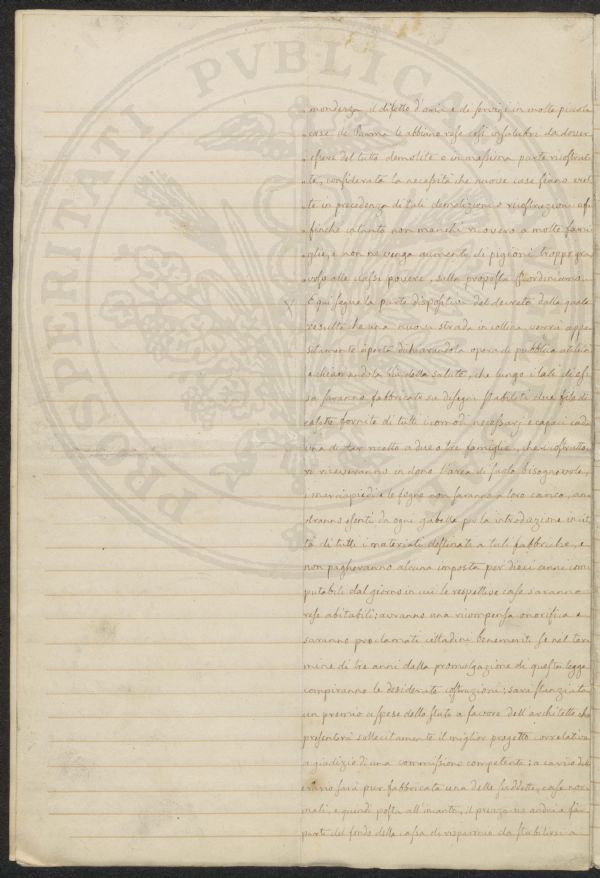 PROSPERITATI PVBLICAE
mondezza, il difetto d'aria e di servizi in molte piccole
case di Parma le abbiano rese così insalubri da dover
essere del tutto demolite o in massima parte ricostrut
te; considerata la necessità che nuove case siano eret
te in precedenza di tali demolizioni e ricostruzioni af
finchè intanto non manchi ricovero a molte fami
glie, e non ne venga aumento di pigioni troppo gra
voso alle classi povere, sulla proposta &c ordiniamo.
E qui segue la parte dispositiva del decreto dalla quale
risulta che una nuova strada in collina verrà appo
sitamente aperta dichiarandola opera di pubblica utilità
e chiamandola via della salute, che lungo i lati di es
sa saranno fabbricate su disegni stabiliti due file di
casette fornite di tutti i comodi necessari e capaci cadu
una di dar ricetto a due o tre famiglie, che i costrutto
ri riceveranno in dono l'area di suolo bisognevole,
i marciapiedi e le fogne non saranno a loro carico, an
dranno esenti da ogni gabella per la introduzione in cit
tà di tutti i materiali destinati a tali fabbriche, e
non pagheranno alcuna imposta per dieci anni com
putabili dal giorno in cui le respettive case saranno
rese abitabili; avranno una ricompensa onorifica e
saranno proclamati cittadini benemeriti se nel ter
mine di tre anni dalla promulgazione di questa legge
compiranno le desiderate costruzioni; sarà stanziato
un premio a spese dello stato a favore dell'architetto che
presenterà sollecitamente il miglior progetto correlativo
a giudizio di una commissione competente; a carico dell'
erario sarà pur fabbricata una delle suddette case nor
mali, e quindi posta all'incanto, il prezzo ne andrà a far
parte del fondo della cassa di risparmio da stabilirsi a